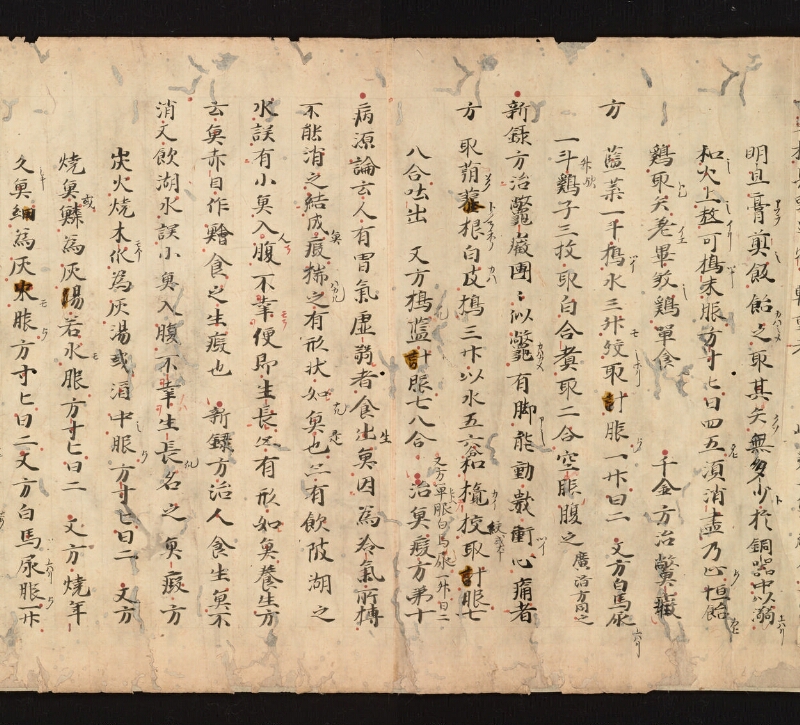 明旦膏煎飯飴之取其矢無多少於銅器中以溺
和火上熬可擣末服方寸匕日四五須消盡乃止恒飴
鷄取矢老畢煞鷄單食 千金方治鱉癥
方 藍葉一斤擣水三升絞取汁服一升日二 又方白馬尿
一斗鷄子三枚取白合煮取二合空服腹之 廣治方同之
新録方治鱉癥團〻似鱉有脚能動戴衝心痛者
方 取蒴藋根白皮擣三升以水五六合和攪授取汁服七
八合吐出 又方擣藍汁服七八合 之方單服白馬尿一升日二 治魚瘕方第十
病源論云人有胃氣虛弱者食生魚因為冷氣所搏
不能消之結成瘕揣之有形状如魚也亦有飲陂湖之
水誤有小魚入腹不幸便即生長亦有形如魚養生方
云魚赤目作鱠食之生瘕也 新録方治人食生魚不
消又飲湖水誤小魚入腹不幸生長名之魚瘕方
炭火燒木作為灰湯或酒中服方寸匕日二 又方
燒魚鱗為灰湯若水服方寸匕日二 又方燒年
久魚網為灰水服方寸匕日二又方白馬尿服一升